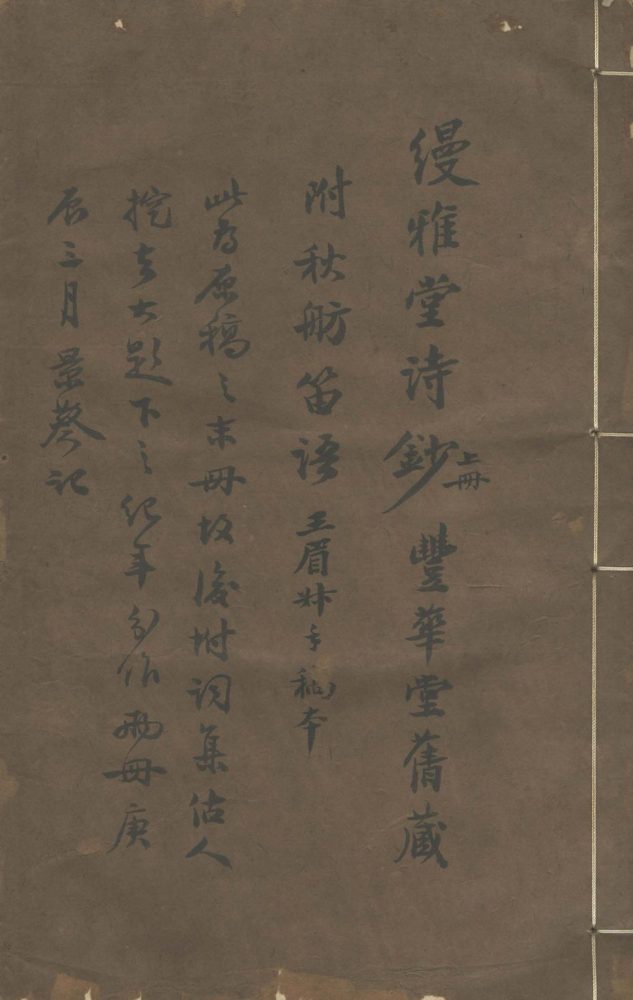 缦雅堂诗鈔上冊 豐華堂舊藏
附秋舫笛语 王眉叔手稿本
此为原稿之末册故後坿词集估人
挖去大题下之纪年分作两册庚
辰三月景葵记